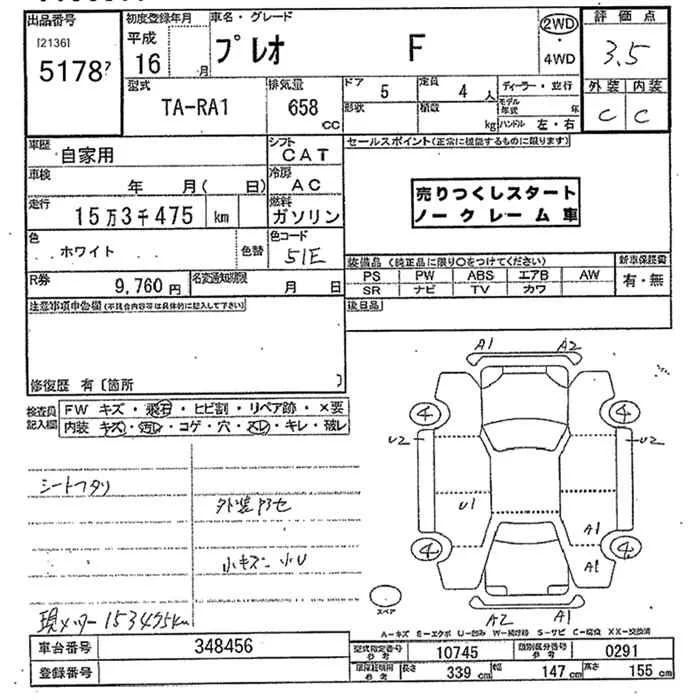 出品番号 初度登録年月 車名・グレード 2WD 評価点
[2136] 平成 プレオ F ・ 3.5
5178 7 16 月 4WD
型式 排気量 ドア 5 定員 4 人 ディーラー・並行 外装 内装
TA-RA1 658 cc 形状 積数 kg モデル年式 年 C C
ハンドル 左・右
車歴 自家用 シフト CAT セールスポイント(正常に機能するものに限ります)
車検 年 月( 日) 冷房 AC
走行 15万3千475 km 燃料 ガソリン
売りつくしスタート
ノークレーム車
色 ホワイト 色替 色コード 51E
装備品(純正品に限り○をつけてください) 新車保証書
R券 9,760円 名変通知期限 月 日
PS PW ABS エアB AW 有・無
SR ナビ TV カワ
注意事項申告欄(不具合内容等は具体的に記入して下さい) 後日品
修復歴 有〔箇所 〕
検査員記入欄 FW キズ・飛石・ヒビ割・リペア跡・×要
内装 キズ・汚れ・コゲ・穴・スレ・キレ・破レ
A1 A2
4 4
U2 U2
シートヘタリ
外装アセ
U1 A1
小キズ 小U
4 4
A1
スペア
現メーター 153475km
A2 A1
A-キズ E-エクボ U-凹み W-補修跡 S-サビ C-腐食 XX-交換済
車台番号 348456 型式指定番号 参考 10745 類別区分番号 参考 0291
登録番号 長さ 339 cm 幅 147 cm 高さ 155 cm